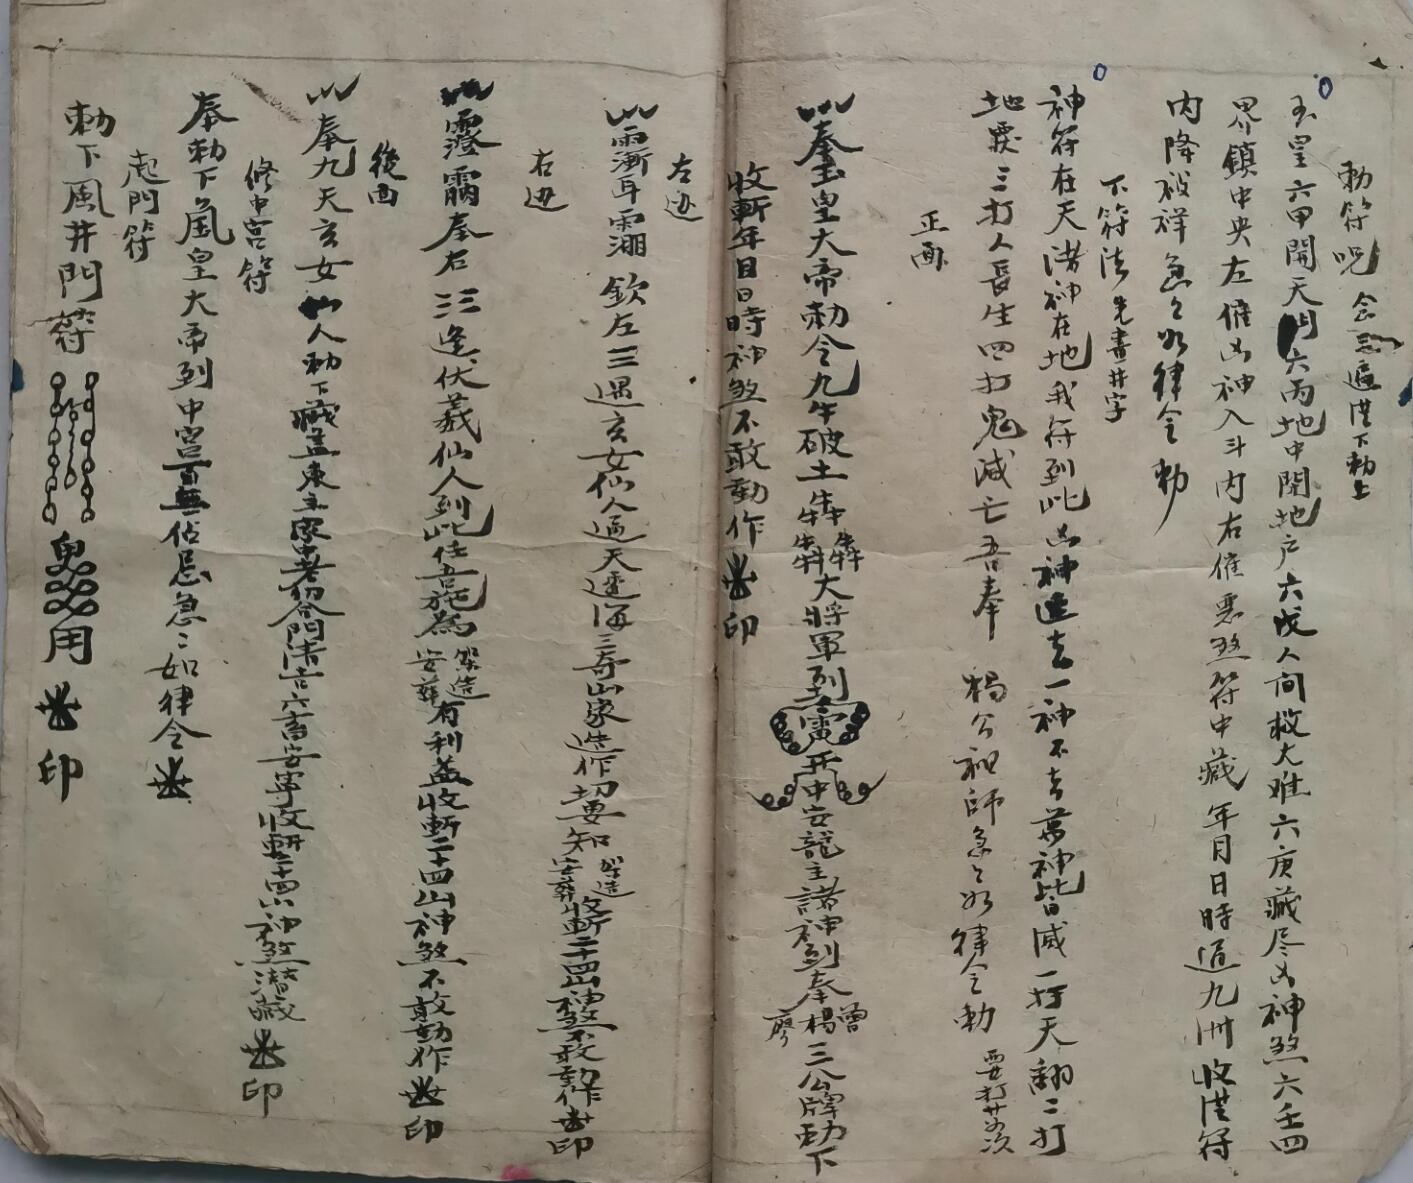 勅符呪 念三遍洪下勅上
玉皇六甲開天門六丙地中開地户六戊人间救大难六庚藏尽凶神煞六壬四
界鎮中央左催凶神入斗内右催悪煞符中藏年月日時通九州收洪符
内降祯祥急々如律令勅
下符法先畫井字
神符在天諸神在地我符到此凶神速去一神不去萬神皆滅一打天翻二打
地裂三打人長生四打鬼滅亡吾奉 楊公祖師急々如律令勅 要打廿四次
正面
奉玉皇大帝勅令九牛破土犇犇大將軍到 中安龍主諸神到奉楊曾廖三公牌勅下
收斬年月日時神煞不敢動作 印
左边
欽左三遇玄女仙人通天透海三奇山家造作切要知架造安葬收斬二十四山神煞不敢動作 印
右边
奉右三逢伏羲仙人到此任吾施為架造安葬有利益收斬二十四山神煞不敢動作 印
後面
奉九天玄女仙人勅下藏盖東主家老幼合門清吉六畜安寧收斬二十四山神煞潜藏 印
修中宮符
奉勅下 皇大帝到中宮百無佔忌急々如律令
起門符
勅下風井門符 用 印